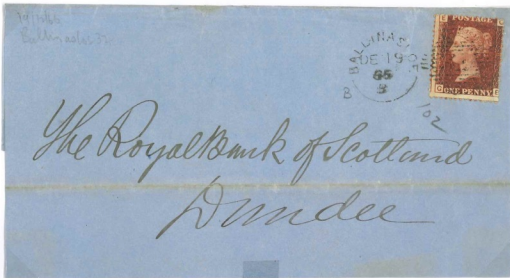 BALLINASLOE
DE 19
65
B
B
POSTAGE
ONE PENNY
102
The Royal Bank of Scotland
Dundee